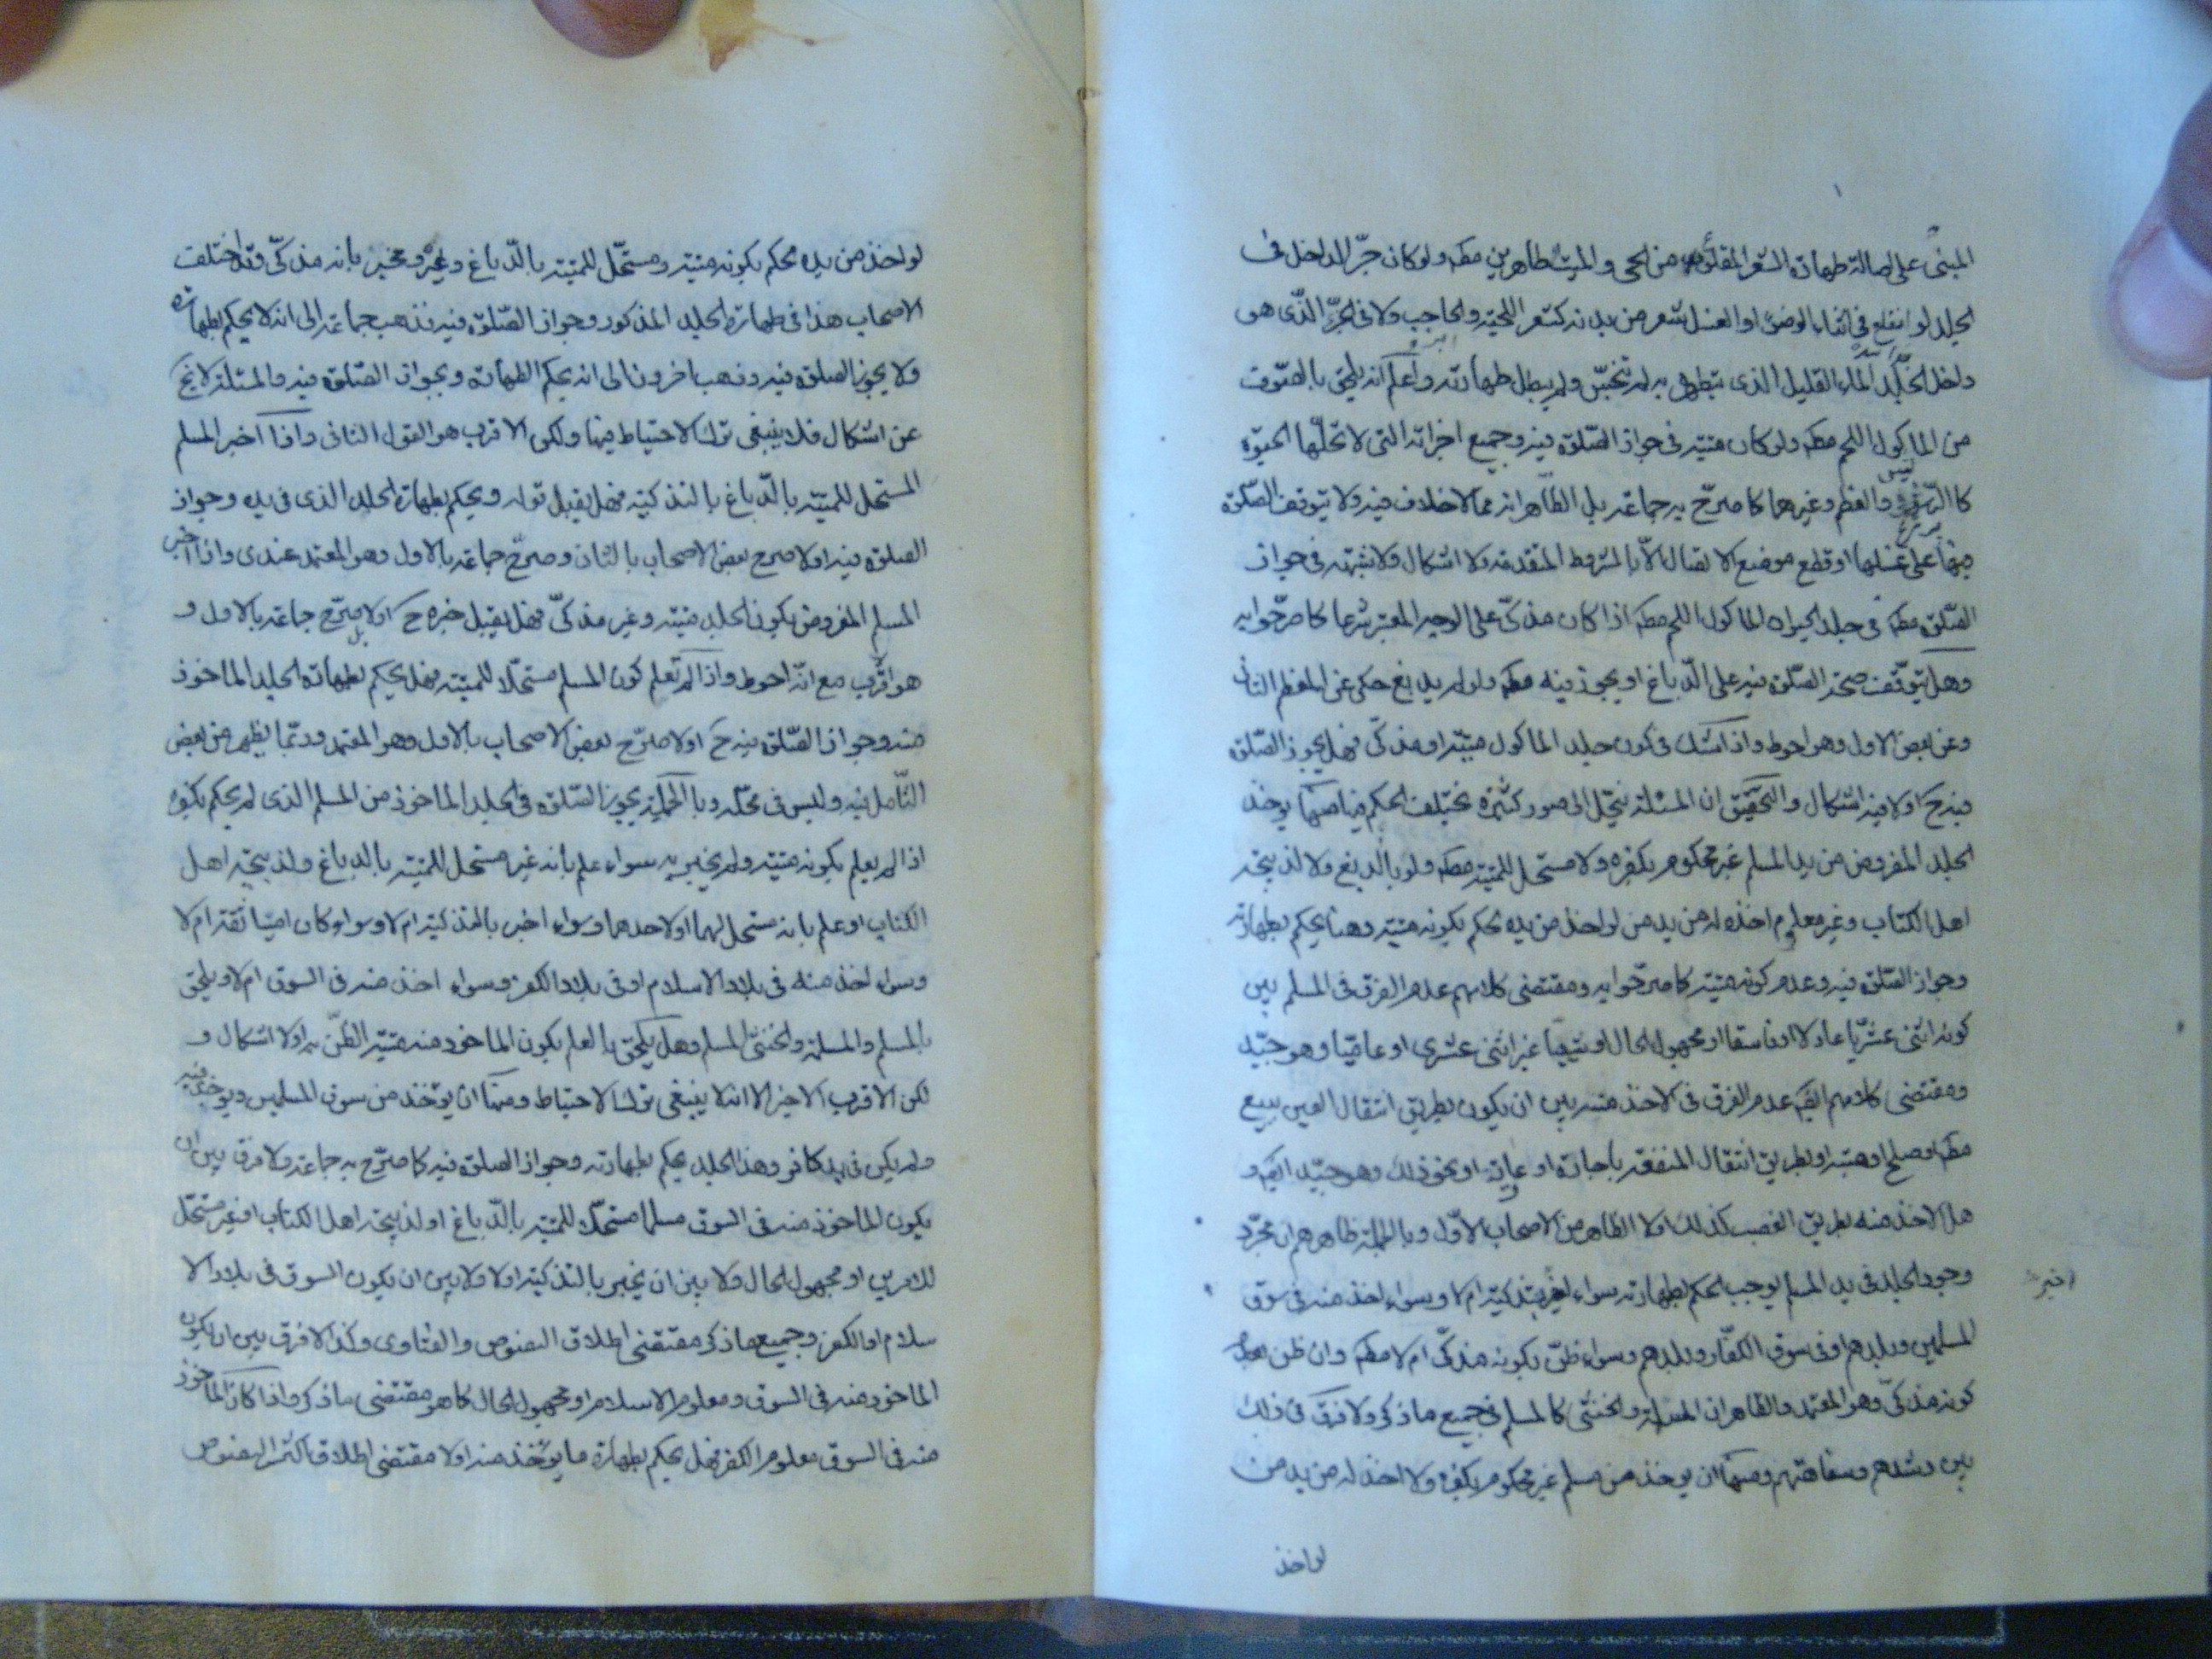 المبنى على اصالة طهارة الشعر المقلوع من الحى والميت طاهرين مطه ولو كان جزء الداخل فى
الجلد لو انقلع فى اثناء الوضوء او الغسل شعر من بدنه كشعر اللحية والحاجب ولاقى الجزء الذى هو
داخل الجلد الماء القليل الذى يتطهر به لم يتنجس ولم يبطل طهارته واعلم انه يلحق بالصوف
من الماكول اللحم مطه ولو كان ميتة فى جواز الصلوة فيه جميع اجزائه التى لا تحلّها الحيوة
كالريش والعظم وغيرهما كما صرّح به جماعة بل الظاهر انه مما لا خلاف فيه ولا يتوقف الصلوة
فيها على غسلها او قطع موضع الاتصال الّا بالشروط المتقدمة ولا اشكال ولا شبهة فى جواز
الصلوة مطه فى جلد الحيوان الماكول اللحم مطه اذا كان مذكّى على الوجه المعتبر شرعا كما صرّحوا به
وهل يتوقف صحة الصلوة فيه على الدّباغ او يجوز فيه مطه ولو لم يدبغ حكى عن المعظم الثانى
وعن بعض الاول وهو احوط واذا شك فى كون جلد الماكول ميتة او مذكّى فهل يجوز الصلوة
فيه ح اولا فيه اشكال والتحقيق ان المسئلة ينحل الى صور كثيرة يختلف الحكم فيها منها يوخذ
الجلد المفروض من يد المسلم غير محكوم بكفره ولا مستحل للميتة مطه ولو بالدبغ ولا لذبيحة
اهل الكتاب وغير معلوم اخذه له من يد من لو اخذ من يده يحكم بكونه ميتة وهنا يحكم بطهارته
وجواز الصلوة فيه وعدم كونه ميتة كما صرّحوا به ومقتضى كلامهم عدم الفرق فى المسلم بين
كونه اثنى عشريّا عادلا او فاسقا او مجهول الحال او شيعيا غير اثنى عشرى او عاميّا وهو جيّد
ومقتضى كلامهم ايضه عدم الفرق فى الاخذ منه بين ان يكون بطريق انتقال العين ببيع
مطه او صلح او هبة او بطريق انتقال المنفعة باجارة او عارية او نحو ذلك وهو جيّد ايضه و
هل الاخذ منه بطريق الغصب كذلك اولا الظاهر من الاصحاب الاوّل وبالجملة ظاهرهم ان مجرّد
وجود الجلد فى يد المسلم يوجب الحكم بطهارته سواء اخبر بتذكيته ام لا وسواء اخذ منه فى سوق
اخبر
المسلمين وبلدهم او فى سوق الكفّار وبلدهم وسواء ظنّ بكونه مذكّى ام لا مطه وان ظن بعدم
كونه مذكّى وهو المعتمد والظاهر ان المسلمة والخنثى كالمسلم فى جميع ما ذكر ولا فرق فى ذلك
بين رشدهم وسفاهتهم ومنها ان يوخذ من مسلم غير محكوم بكفره ولا اخذ له من يد من
لو اخذ
لو اخذ من يده يحكم بكونه ميتة ومستحّل للميتة بالدّباغ وغيره ومخبر بانه مذكّى وقد اختلف
الاصحاب هنا فى طهارة الجلد المذكور وجواز الصّلوة فيه فذهب جماعة الى انه لا يحكم بطهارته
ولا يجوز الصلوة فيه وذهب اخرون الى انه يحكم الطهارة ويجواز الصّلوة فيه والمسئلة لا تخ
عن اشكال فلا ينبغى ترك الاحتياط فيها ولكن الاقرب هو القول الثانى واذا اخبر المسلم
المستحل للميتة بالدّباغ بالتذكية فهل يقبل قوله ويحكم بطهارة الجلد الذى فى يده وجواز
الصلوة فيه اولا صرح بعض الاصحاب بالثانى وصرّح جماعة بالاول وهو المعتمد عندى واذا اخبر
المسلم المفروض بكون الجلد ميتة وغير مذكّى فهل يقبل خبره ح اولا صرّح جماعة بالاول و
هو اقرب مع انه احوط واذا لم تعلم كون المسلم مستحّلا للميتة فهل يحكم بطهارة الجلد الماخوذ
منه وجواز الصّلوة فيه ح اولا صرّح بعض الاصحاب بالاول وهو المعتمد وربّما يظهر من بعض
التّامل فيه وليس فى محّله وبالجملة يجوز الصّلوة فى الجلد الماخوذ من المسلم الذى لم يحكم بكفره
اذا لم يعلم بكونه ميتة ولم يخبر به سواء علم بانه غير مستحل للميتة بالدباغ ولذبيحة اهل
الكتاب او علم بانه مستحل لهما او لاحدهما وسواء اخبر بالتذكية ام لا وسواء كان امينا ثقة ام لا
وسواء اخذ منه فى بلاد الاسلام او فى بلاد الكفر وسواء اخذ منه فى السوق ام لا ويلحق
بالمسلم والمسلمة والخنثى المسلم وهل يلحق بالعلم بكون الماخوذ منه ميتة الظنّ به اولا اشكال و
لكن الاقرب الاخير الا انه لا ينبغى ترك الاحتياط ومنها ان يؤخذ من سوق المسلمين ويوجد فيه
ولم يكن فى يد كافر وهذا الجلد يحكم بطهارته وجواز الصلوة فيه كما صرّح به جماعة ولا فرق بين ان
يكون الماخوذ منه فى السوق مسلما مستحّلا للميتة بالدّباغ او لذبيحة اهل الكتاب او غير مستحّل
للامرين او مجهول الحال ولا بين ان يخبر بالتذكية اولا ولا بين ان يكون السوق فى بلاد الا
سلام او الكفر وجميع ما ذكر مقتضى اطلاق النصوص والفتاوى وكذا لا فرق بين ان يكون
الماخوذ منه فى السوق ومعلوم الاسلام او مجهول الحال كما هو مقتضى ما ذكر واذا كان الماخوذ
منه فى السوق معلوم الكفر فهل يحكم بطهارة ما يؤخذ منه اولا مقتضى اطلاق اكثر النصوص